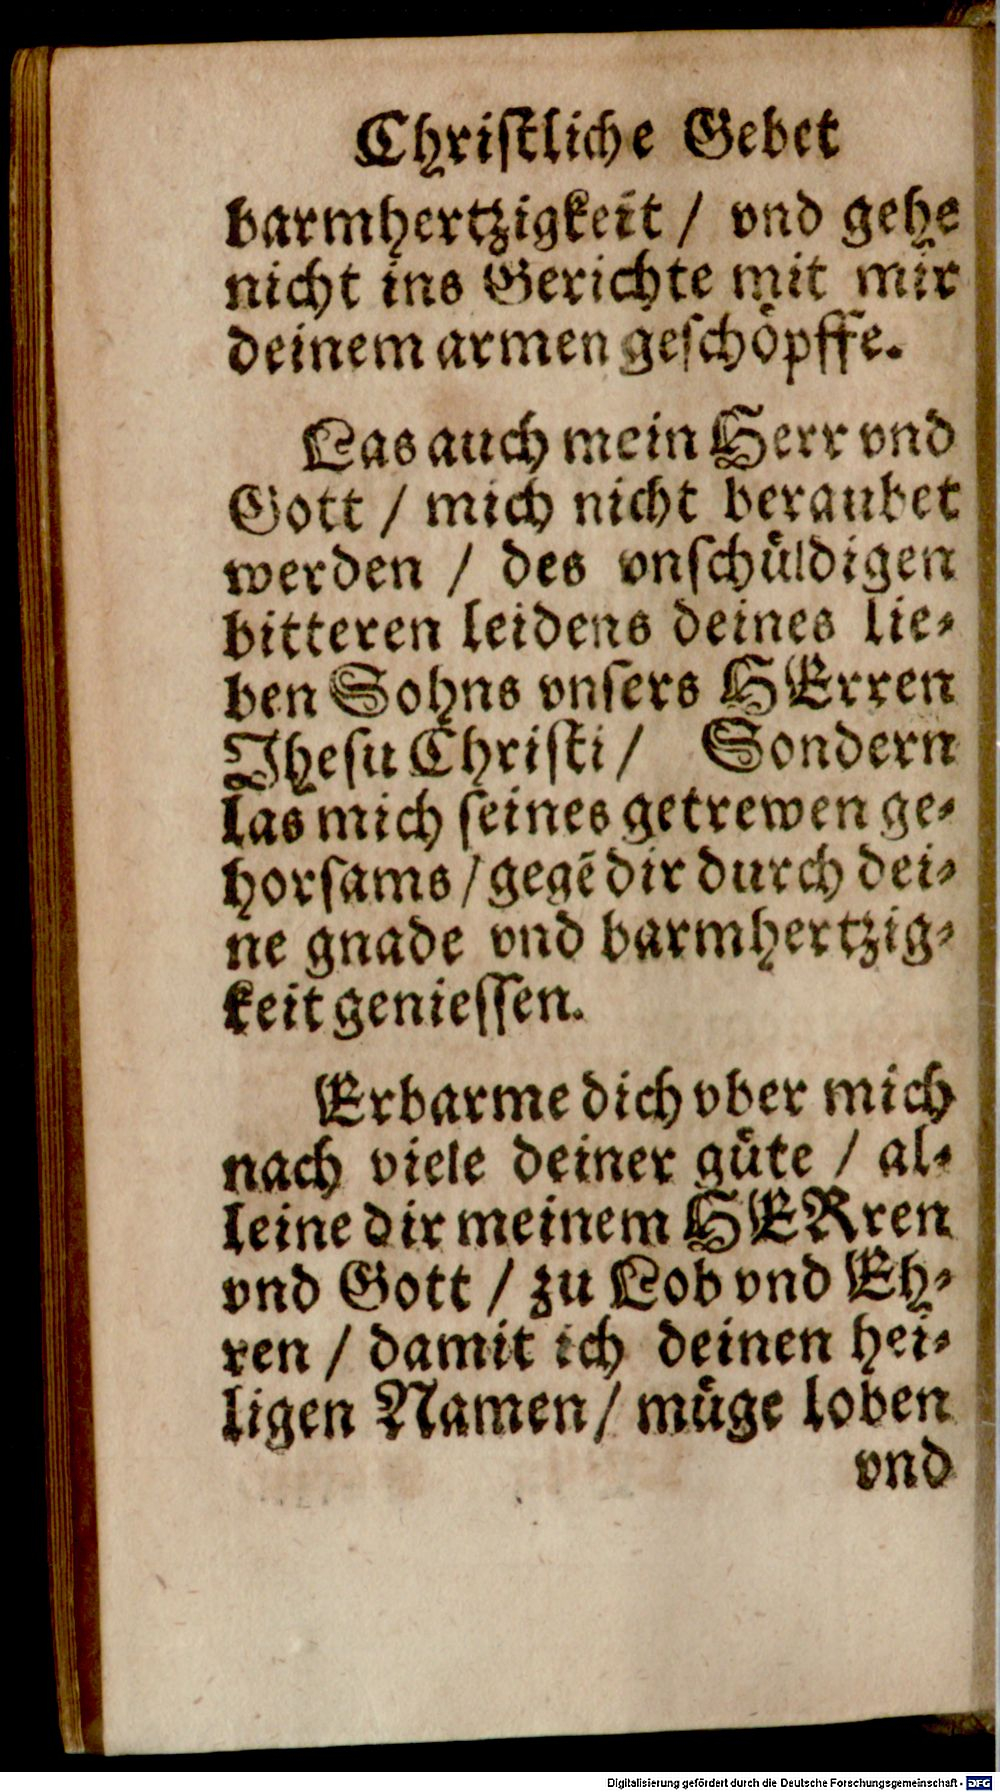 Christliche Gebet
barmhertzigkeit / vnd gehe
nicht ins Gerichte mit mir
deinem armen geschöpffe.
Las auch mein Herr vnd
Gott / mich nicht beraubet
werden / des vnschüldigen
bitteren leidens deines lie-
ben Sohns vnsers HErren
Jhesu Christi / Sondern
las mich seines getrewen ge-
horsams / gegẽ dir durch dei-
ne gnade vnd barmhertzig-
keit geniessen.
Erbarme dich vber mich
nach viele deiner güte / al-
leine dir meinem HERren
vnd Gott / zu Lob vnd Eh-
ren / damit ich deinen hei-
ligen Namen / müge loben
vnd
Digitalisierung gefördert durch die Deutsche Forschungsgemeinschaft - DFG